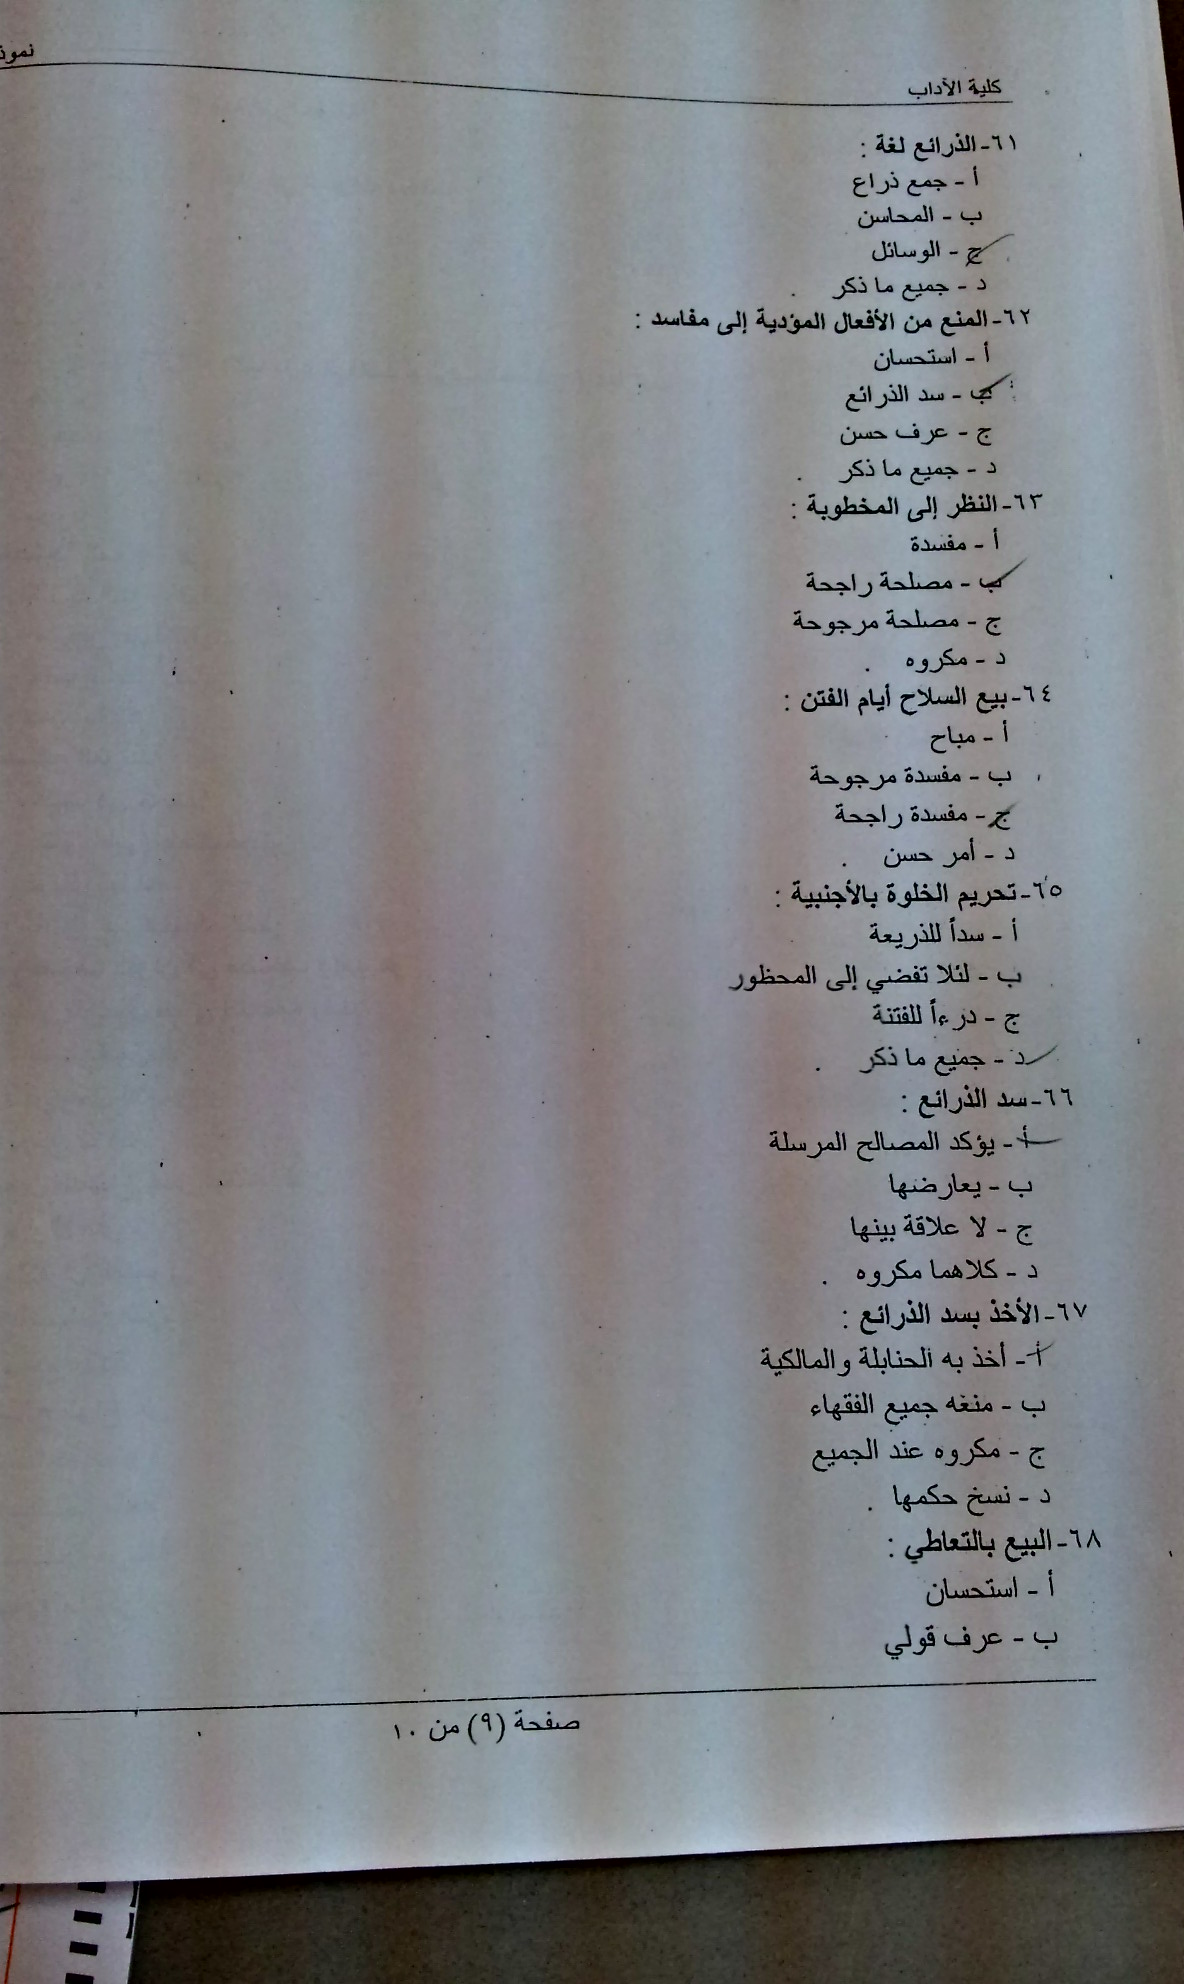 كلية الآداب
نموذ
٦١- الذرائع لغة :
أ - جمع ذراع
ب - المحاسن
ج - الوسائل
د - جميع ما ذكر .
٦٢- المنع من الأفعال المؤدية إلى مفاسد :
أ - استحسان
ب - سد الذرائع
ج - عرف حسن
د - جميع ما ذكر .
٦٣- النظر إلى المخطوبة :
أ - مفسدة
ب - مصلحة راجحة
ج - مصلحة مرجوحة
د - مكروه .
٦٤- بيع السلاح أيام الفتن :
أ - مباح
ب - مفسدة مرجوحة
ج - مفسدة راجحة
د - أمر حسن .
٦٥- تحريم الخلوة بالأجنبية :
أ - سداً للذريعة
ب - لئلا تفضي إلى المحظور
ج - درءاً للفتنة
د - جميع ما ذكر .
٦٦- سد الذرائع :
أ - يؤكد المصالح المرسلة
ب - يعارضها
ج - لا علاقة بينها
د - كلاهما مكروه .
٦٧- الأخذ بسد الذرائع :
أ - أخذ به الحنابلة والمالكية
ب - منعه جميع الفقهاء
ج - مكروه عند الجميع
د - نسخ حكمها .
٦٨- البيع بالتعاطي :
أ - استحسان
ب - عرف قولي
صفحة (٩) من ١٠